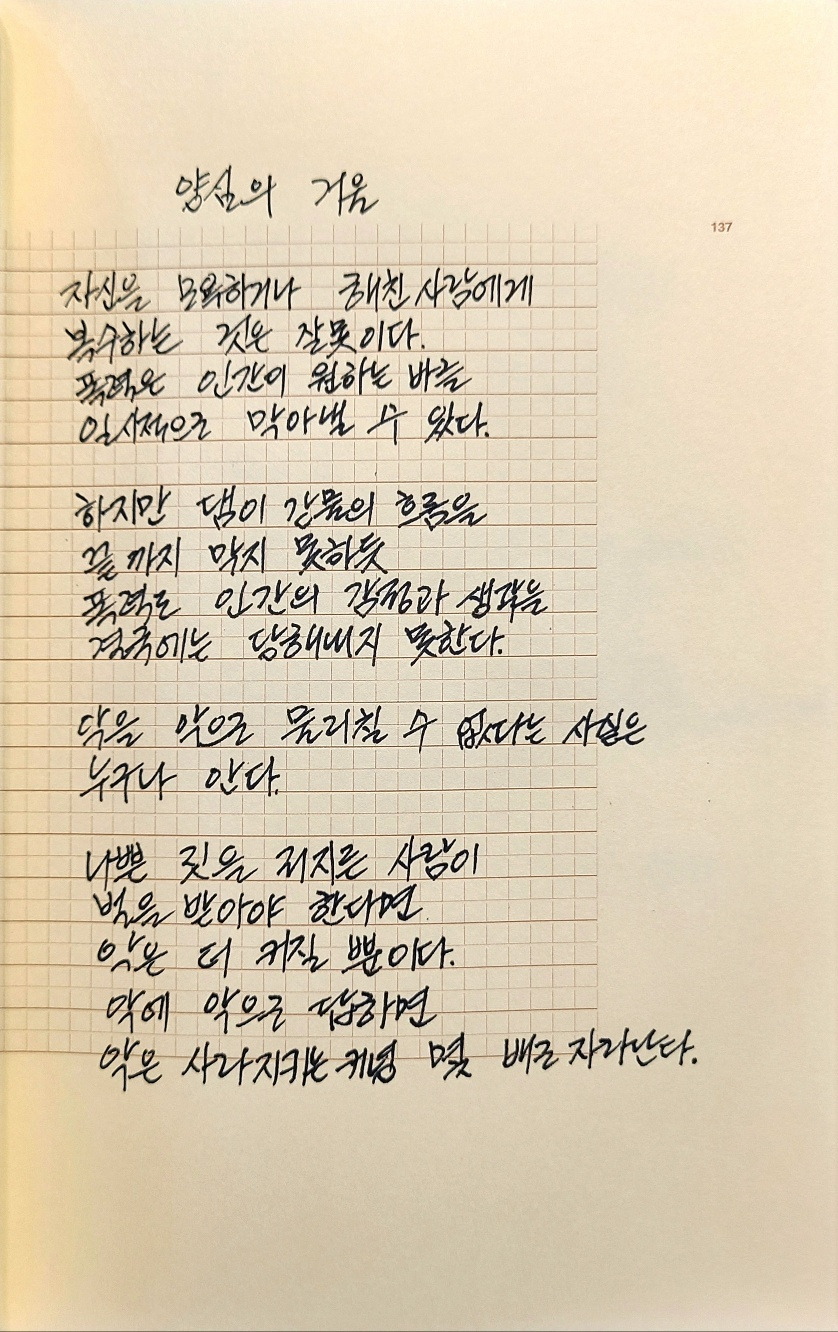 양심의 거울
137
자신을 모욕하거나 해친 사람에게
복수하는 것은 잘못이다.
폭력은 인간이 원하는 바를
일시적으로 막아낼 수 있다.
하지만 댐이 강물의 흐름을
끝까지 막지 못하듯
폭력도 인간의 감정과 생각을
결국에는 당해내지 못한다.
악을 악으로 물리칠 수 없다는 사실은
누구나 안다.
나쁜 짓을 저지른 사람이
벌을 받아야 한다면
악은 더 커질 뿐이다.
악에 악으로 답하면
악은 사라지기는커녕 몇 배로 자라난다.